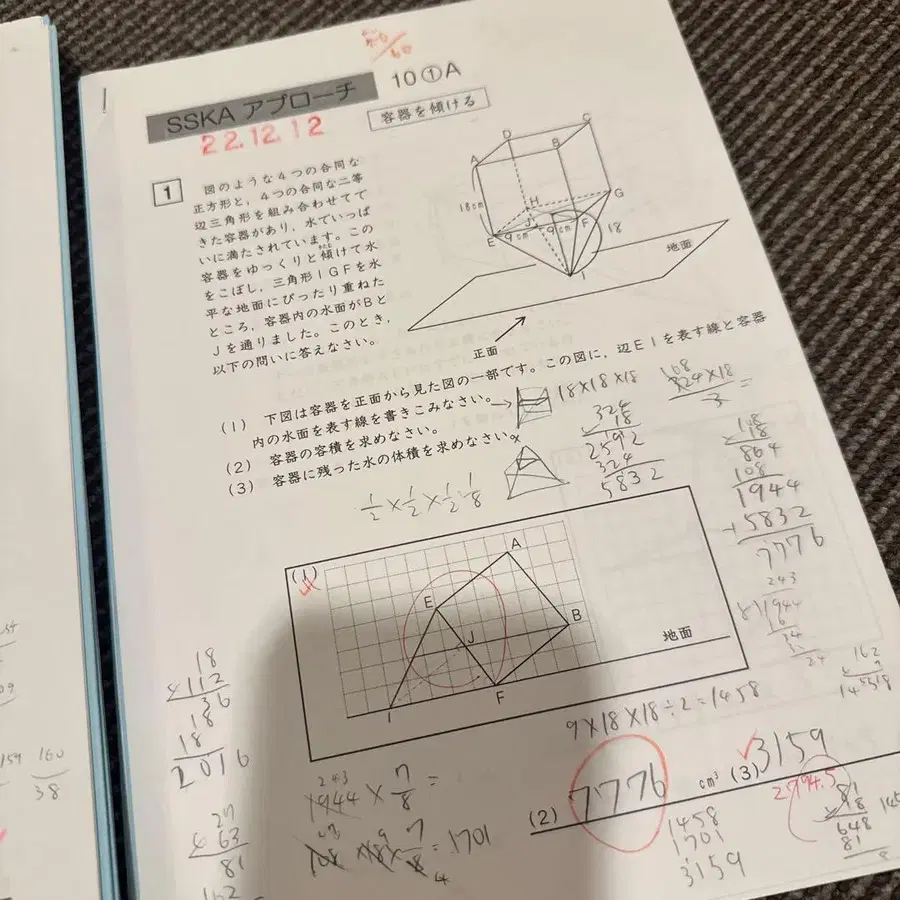 SSKA アプローチ
10①A
22.12.12
容器を傾ける
1
図のような4つの合同な
正方形と，4つの合同な二等
辺三角形を組み合わせてで
きた容器があり，水でいっぱ
いに満たされています。この
容器をゆっくりと傾けて水
をこぼし，三角形IGFを水
平な地面にぴったり重ねた
ところ，容器内の水面がBと
Jを通りました。このとき，
以下の問いに答えなさい。
A
D
B
C
18cm
H
G
J
E
9cm
9cm
F
18
I
地面
正面
(1) 下図は容器を正面から見た図の一部です。この図に，辺EIを表す線と容器
内の水面を表す線を書きこみなさい。
(2) 容器の容積を求めなさい。
(3) 容器に残った水の体積を求めなさい。
18×18×18
324
18
2592
324
5832
108
324×18
3
=
108
×18
864
108
1944
+5832
7776
243
8)1944
16
34
24
162
9
1458
(1)
A
E
B
J
I
F
地面
18
×112
36
18
18
2016
9×18×18÷2=1458
243
1944×7/8=
108×18×7/8=1701
27
×63
81
162
(2)
7776
cm³
(3)
3159
2794.5
1458
1701
3159
81
×18
648
81
159
160
38